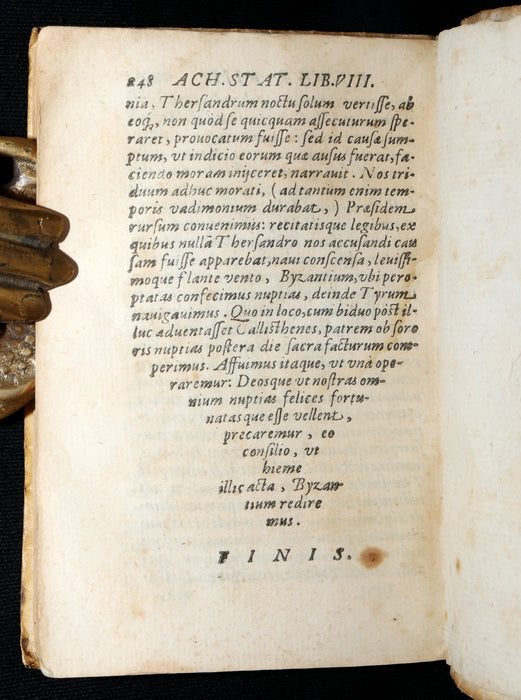 248 ACH. STAT. LIB. VIII.
nia, Thersandrum noctu solum vertisse, ab
eoq́, non quòd se quicquam assecuturum spe-
raret, provocatum fuisse: sed id causæ sum-
ptum, vt indicio eorum quæ ausus fuerat, fa-
ciendo moram inijceret, narrauit. Nos tri-
duum adhuc morati, (ad tantum enim tem-
poris vadimonium durabat,) Præsidem
rursum conuenimus: recitatisque legibus, ex
quibus nullā Thersandro nos accusandi cau
sam fuisse apparebat, naui conscensa, leuissi-
moque flante vento, Byzantium, vbi pero-
ptatas confecimus nuptias, deinde Tyrum
nauigauimus. Quo in loco, cum biduo pòst il-
luc aduentasset Callisthenes, patrem ob soro
ris nuptias postera die sacra facturum com-
perimus. Affuimus itaque, vt vnà ope-
raremur: Deosque vt nostras om-
nium nuptias felices fortu-
natasque esse vellent,
precaremur, eo
consilio, vt
hieme
illic acta, Byzan
tium redire
mus.
FINIS.